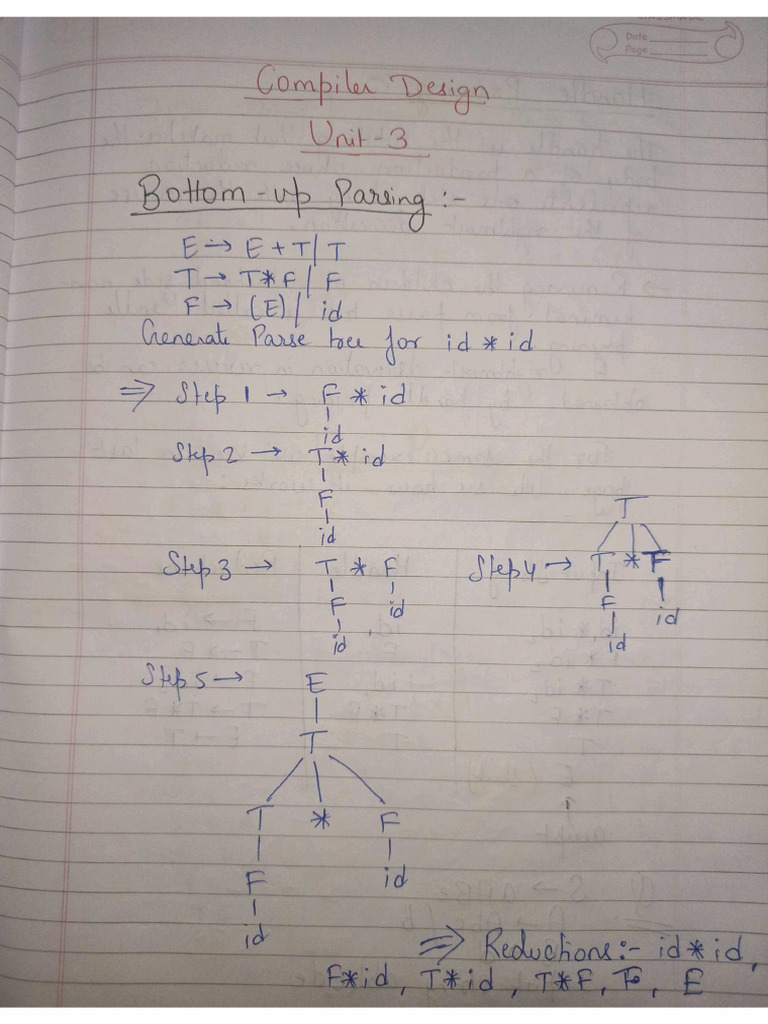 Date
Page
Compiler Design
Unit-3
Bottom-up Parsing :-
E → E + T / T
T → T * F / F
F → (E) / id
Generate Parse tree for id * id
⇒ Step 1 → F * id
id
Step 2 → T * id
F
id
Step 3 → T * F
F id
id
Step 4 → T
T * F
F id
id
Step 5 → E
T
T * F
F id
id
⇒ Reductions:- id * id,
F * id, T * id, T * F, E